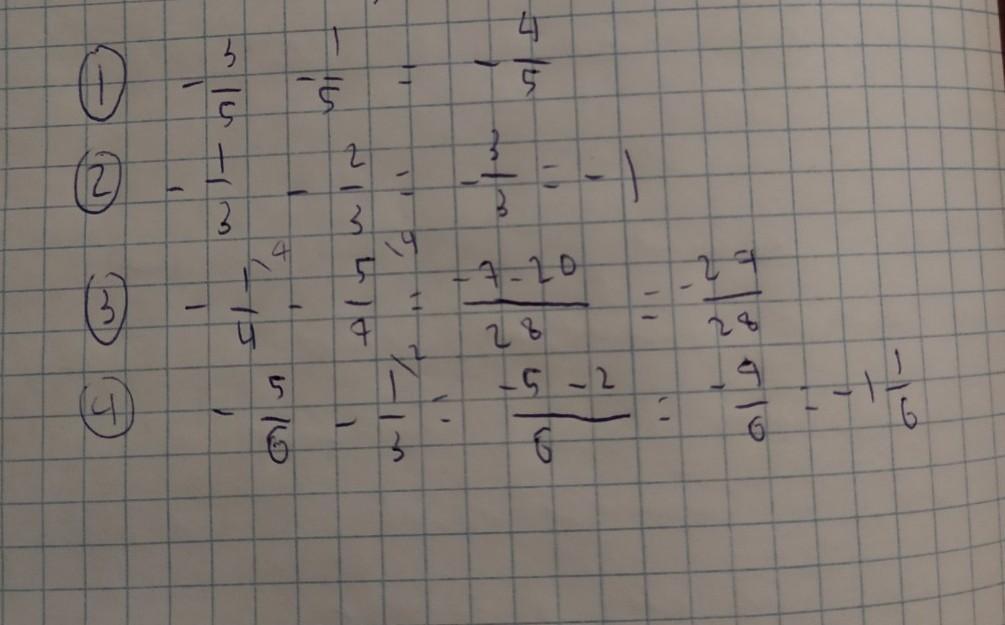 ① - 3/5 - 1/5 = - 4/5
② - 1/3 - 2/3 = - 3/3 = - 1
③ - 1\7/4 - 5\4/7 = -7-20/28 = -27/28
④ - 5/6 - 1\2/3 = -5-2/6 = -7/6 = -1 1/6